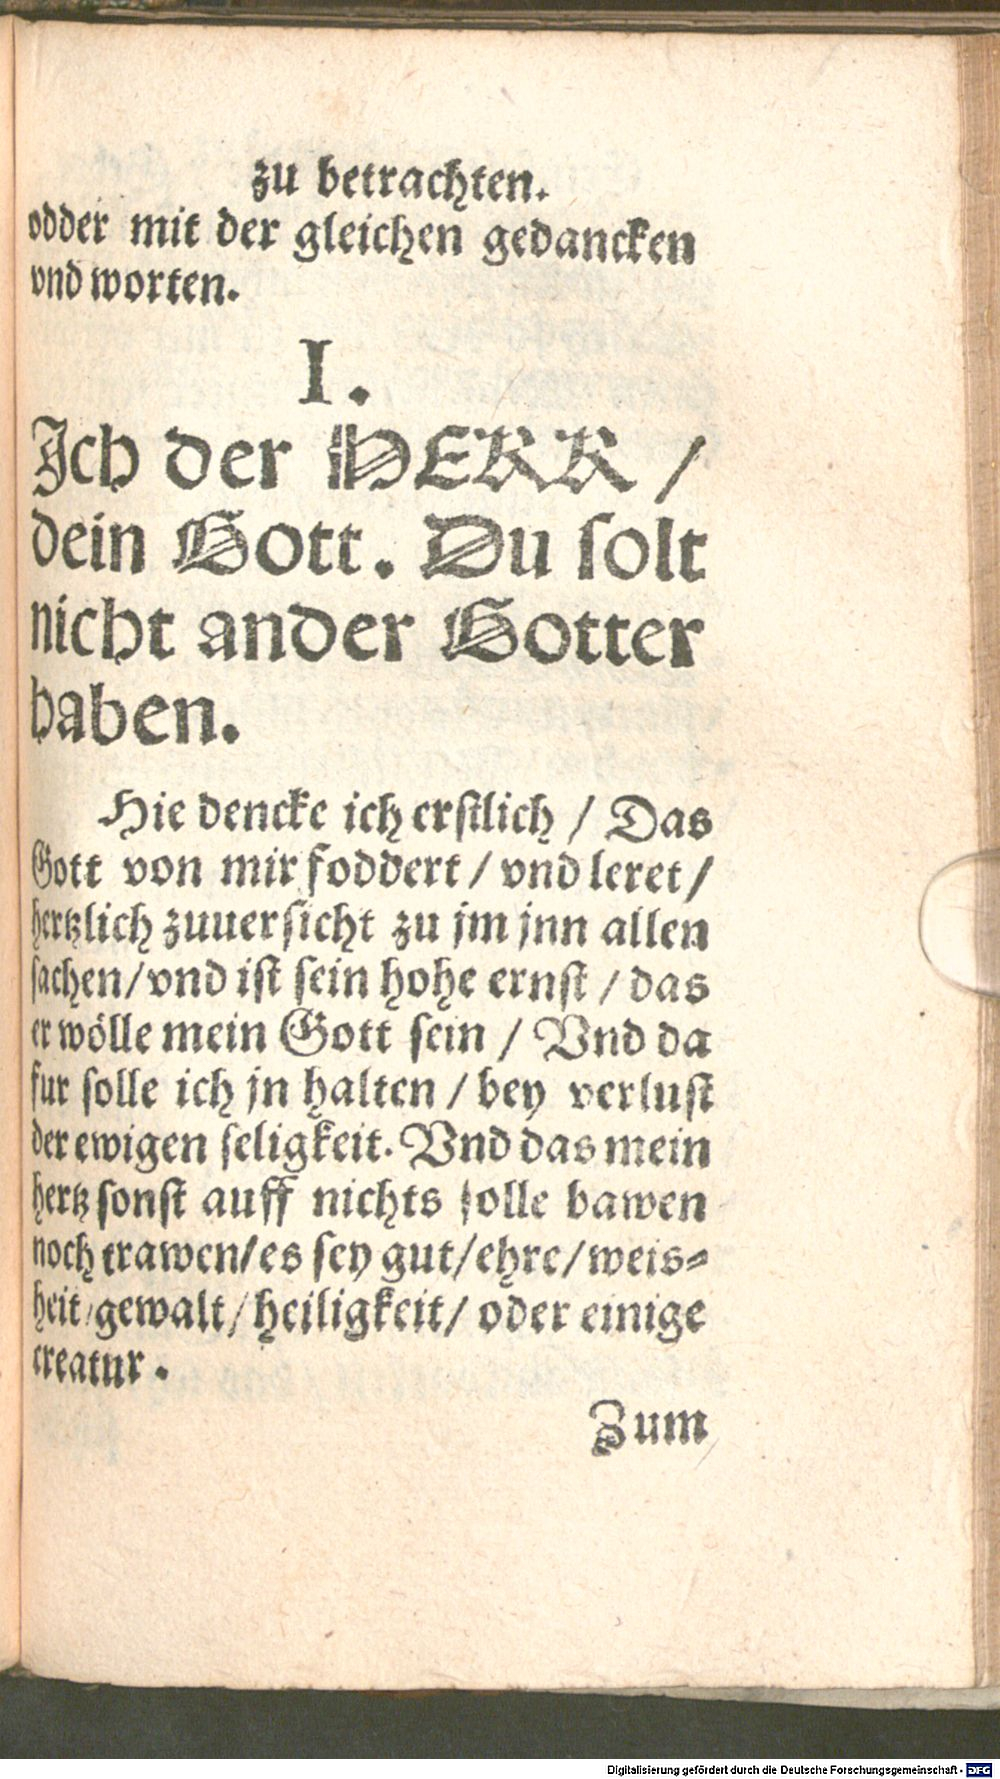 zu betrachten.
odder mit der gleichen gedancken
vnd worten.
I.
Ich der HERR /
dein Gott. Du solt
nicht ander Gotter
haben.
Hie dencke ich erstlich / Das
Gott von mir foddert / vnd leret /
hertzlich zuuersicht zu jm jnn allen
sachen / vnd ist sein hohe ernst / das
er wölle mein Gott sein / Vnd da
fur solle ich jn halten / bey verlust
der ewigen seligkeit. Vnd das mein
hertz sonst auff nichts solle bawen
noch trawen / es sey gut / ehre / weis-
heit / gewalt / heiligkeit / oder einige
creatur.
Zum
Digitalisierung gefördert durch die Deutsche Forschungsgemeinschaft - DFG